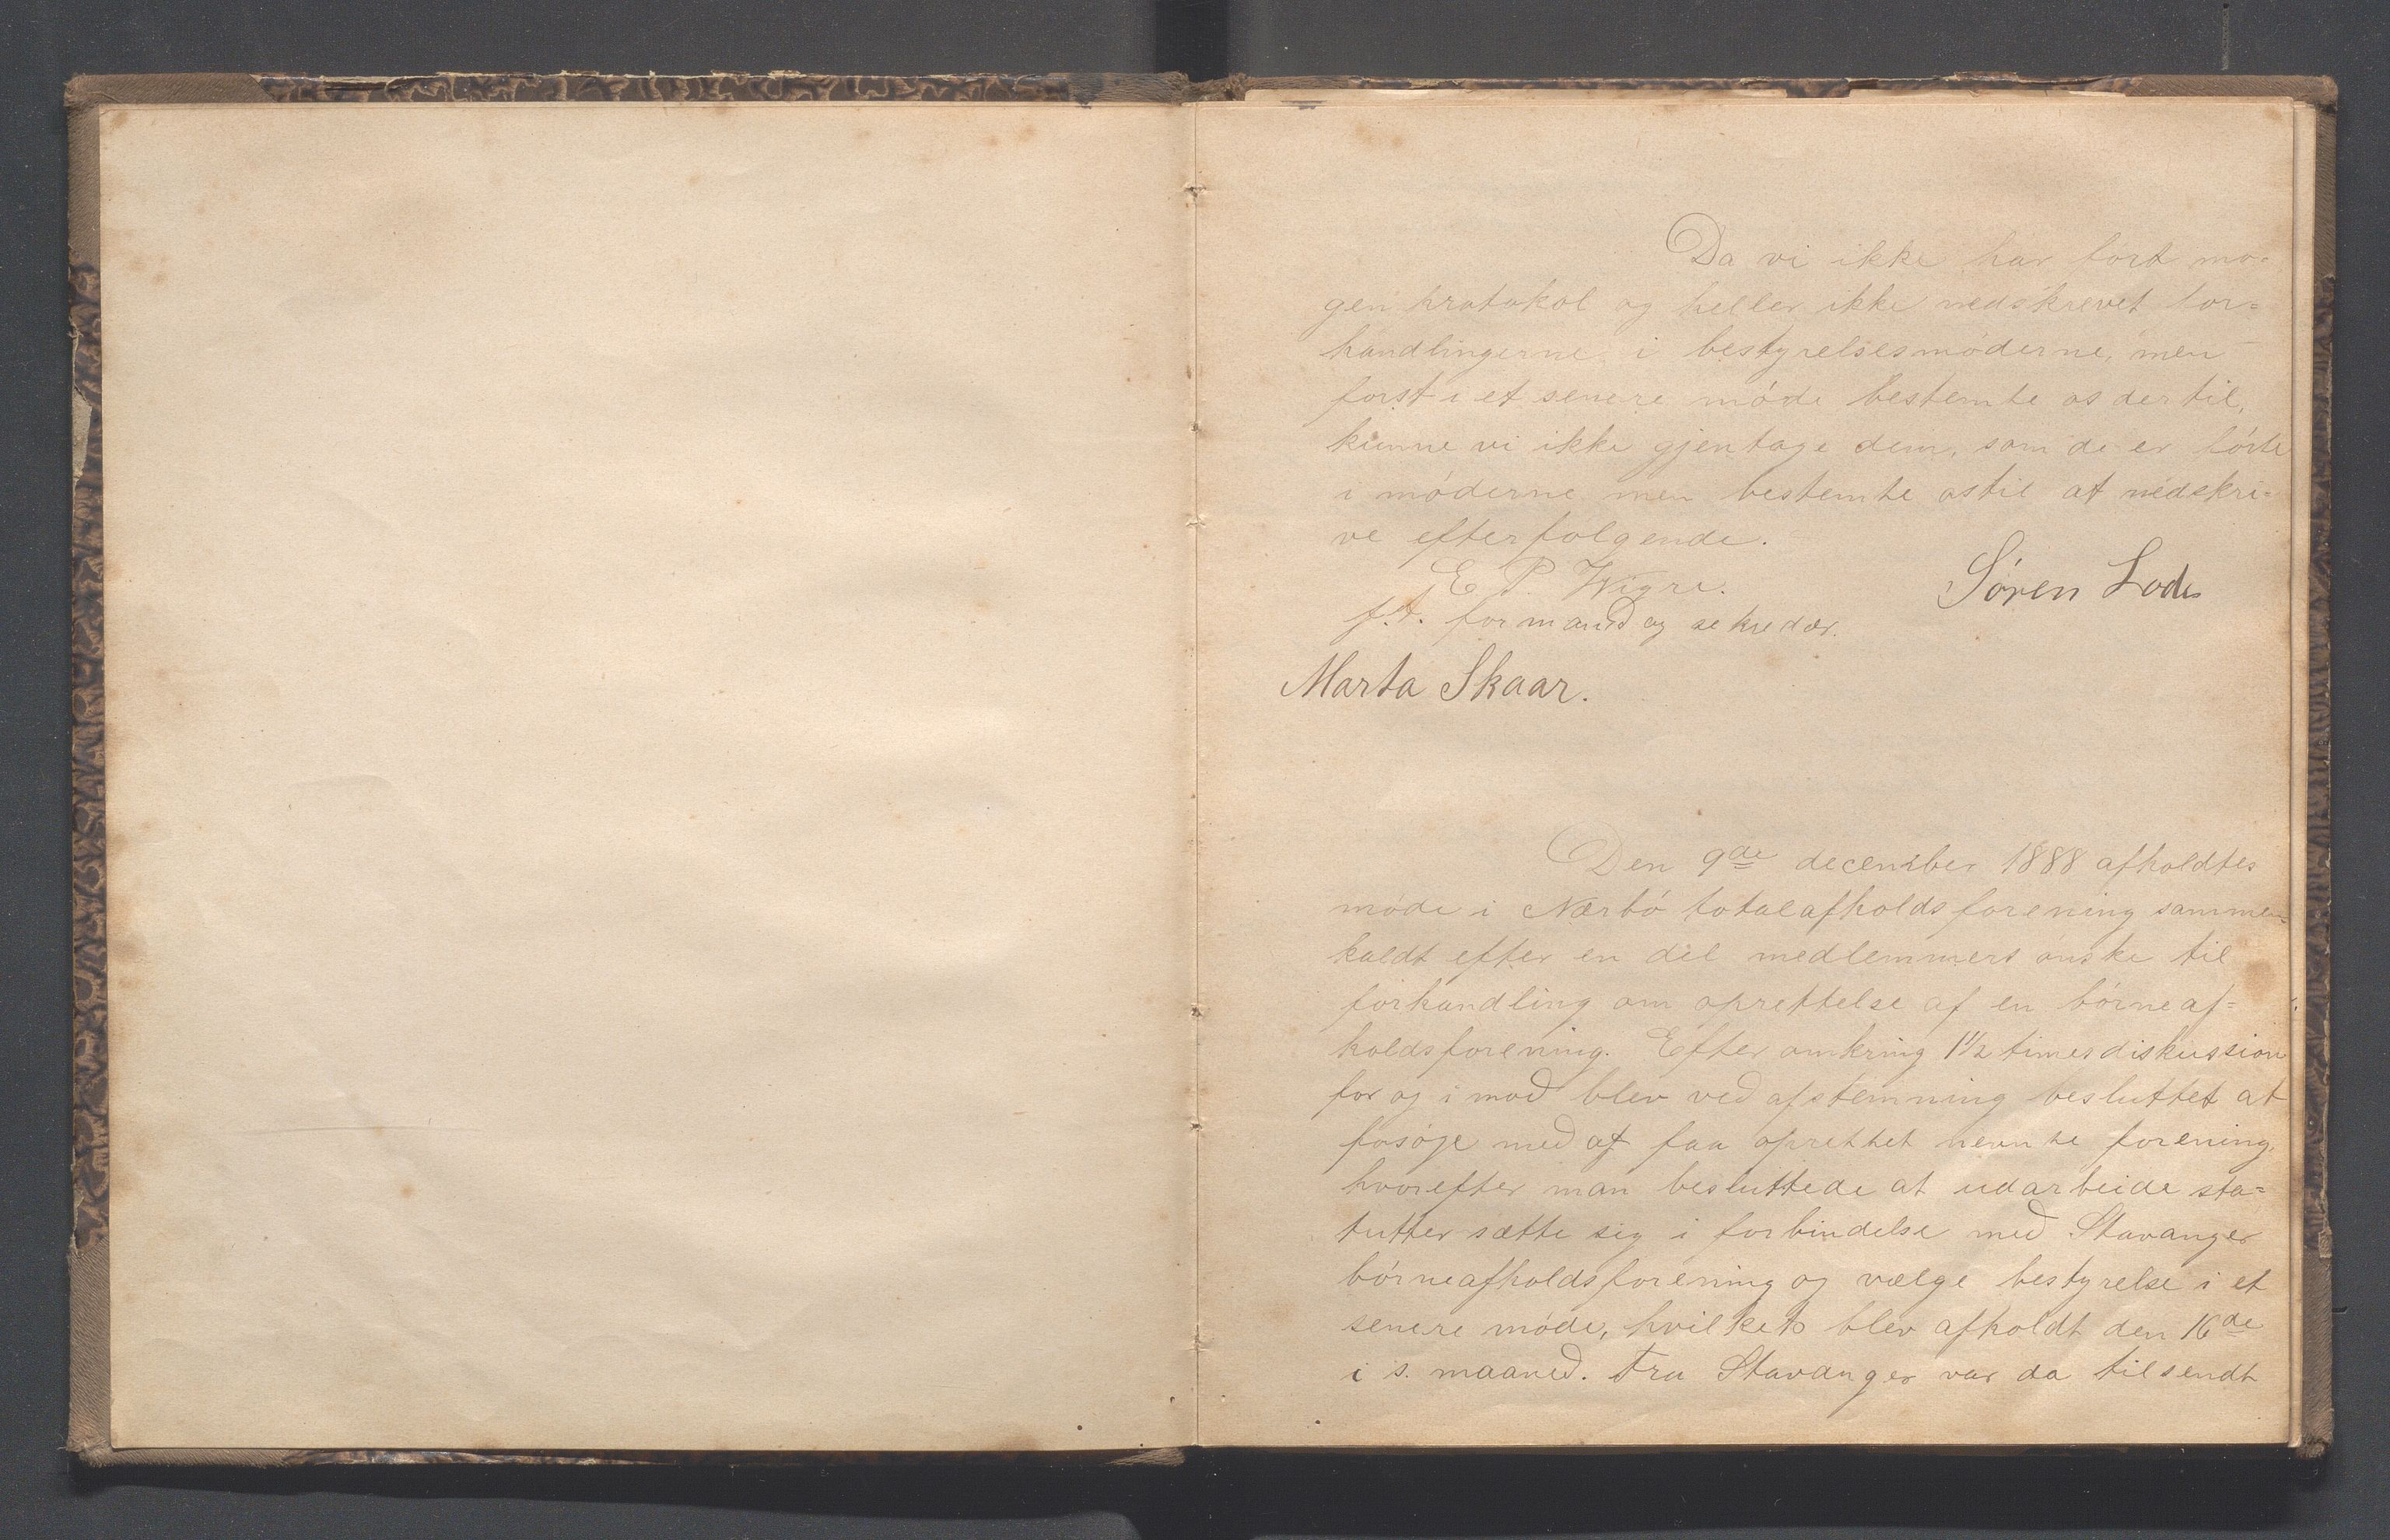 Da vi ikke har ført no-
gen protokol og heller ikke nedskrevet for=
handlingerne i bestyrelsesmøderne, men
først i et senere møde bestemte os dertil,
kunne vi ikke gjentage dem, som de er førte
i møderne men bestemte os til at nedskri-
ve efterfølgende.
E P. Wigre.
Søren Lode
f.t. formand og sekredær.
Marta Skaar.
Den 9de december 1888 afholdtes
møde i Nærbø totalafholdsforening sammen=
kaldt efter en del medlemmers ønske til
forhandling om oprettelse af en børneaf=
holdsforening. Efter omkring 1 1/2 times diskussion
for og imod blev ved afstemning besluttet at
forsøge med at faa oprettet nevnte forening,
hvorefter man besluttede at udarbeide sta=
tutter sætte sig i forbindelse med Stavanger
børneafholdsforening og vælge bestyrelse i et
senere møde, hvilket blev afholdt den 16de
i s. maaned. Fra Stavanger var da tilsendt